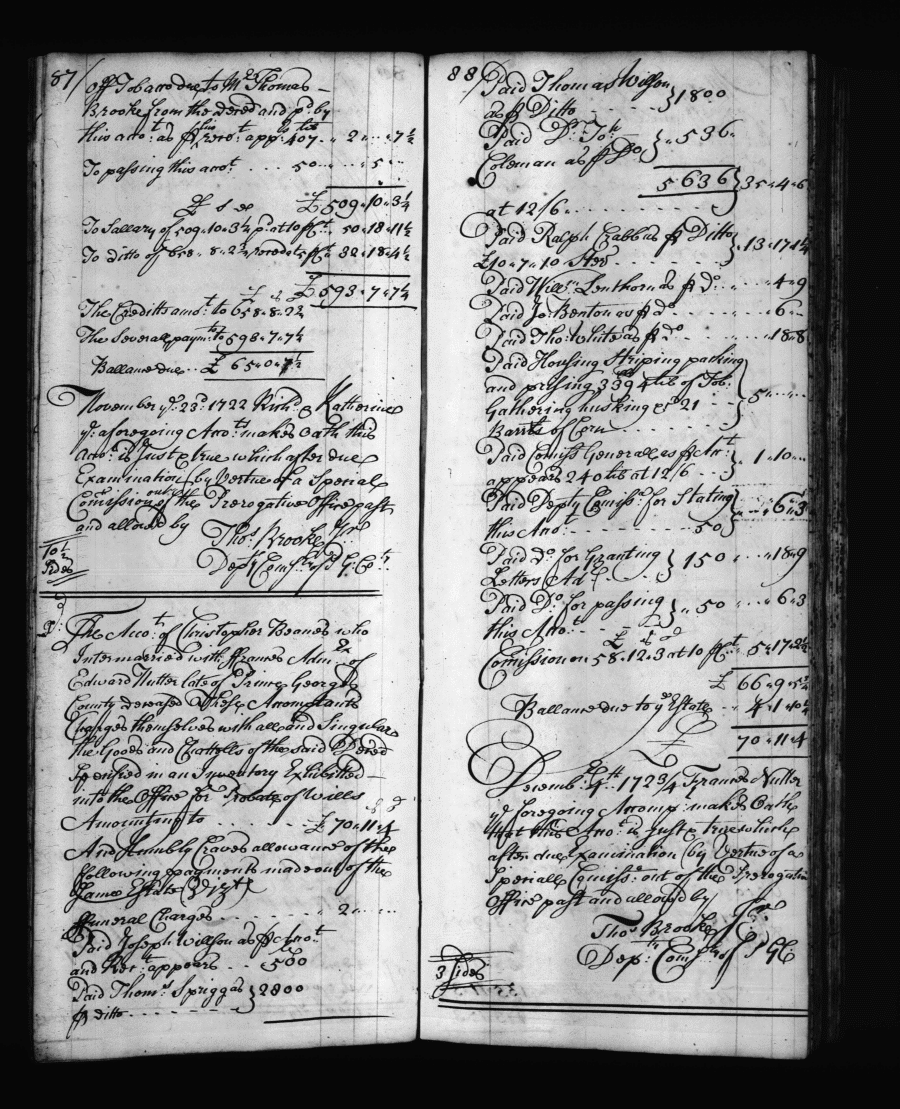 87/
off Tobacco due to Mr. Thomas
Brooke from the deced and pd. by
this accot. as p his recot. appr. 407 lb tob .. 2 .. 7½
To passing this accot. .... 50 ..... 5 ..
£ s d £ 509..10..3¼
To Sallary of 509..10..3¼ pd. at 10 p Ct. 50..18..11½
To ditto of 658..8..2½ 5 p Ct 32..18..4½
£ 593..7..7¼
The Creditts amot. to 658..8..2½
The Severall paymts. to 593..7..7½
Ballance due .. £ 65..0..7½
November ye. 23d. 1722 Richd. & Katherine
ye. aforegoing Accots. makes oath this
Acco. is Just & true which after due
Examination by Vertue of a Special
Comission out of the Prerogative Office past
and allowed by Thos. Brooke Junr
Depty Comisry of P G: Cty
10½
Sides
The Accot. of Christopher Beanes who
Intermarried with ffrances Admx. of
Edward Nutter late of Prince Georges
County deceased These Accomptants
Charges themselves with all and Singular
the Goods and Chattells of the said Deced
Specified in an Inventory Exhibitted
into the Office for Probate of Wills
Amounting to ..... £ 70..11..4
And Humbly Craves allowance of the
following payments made out of the
Same Estate (Vizt)
ffuneral Charges ........ 2 ....
Paid Joseph Willson as p Accot.
and Rect. appears .. 500
Paid Thoms. Spriggas } 2800
p ditto ........
88/ Paid Thomas Wilson } 1800
as p Ditto ......
Paid Dr. Joh } .. 536
Coleman as p Do
5636 } 35..4..6
at 12/6 .......
Paid Ralph Crabb as p Ditto } 13..17..1¼
£10..7..10 Ster ........
Paid Willm. Lenthorn as p do. .... 4..9
Paid Jo Benton as p do. ..... 6 ..
Paid Tho. White as p do. ..... 18..8
Paid Housing Striping packing
and prising 3394 lb of Tob.
Gathering husking &c 21 } 5 ....
Barrls of Corn .....
Paid Comisy Generall as p Act.
appears 240 lb at 12/6 ... } 1..10 ..
Paid Depty Comisy. for Stating
this Accot. ........ 50 } .. 6..3
Paid do. for Granting } 150 .. 18..9
Letters Ad
Paid Do. for passing } .. 50 ... 6..3
this Acco. ....
£ s d
Comission on 58..12..3 at 10 p Ct. 5..17..2½
£ 66..9..5¾
Ballance due to ye Estate .. 4..1..10¼
£ 70..11..4
Decembr. 4th. 1723/4 Frances Nutter
ye foregoing Accompt. makes Oath
that this Accot. is Just & true which
after due Examination (by Vertue of a
Speciall Comiss. out of the Prerogative
Office past and allowed by
Thos Brooke Junr
Depty. Comisry of P G C
3 Sides